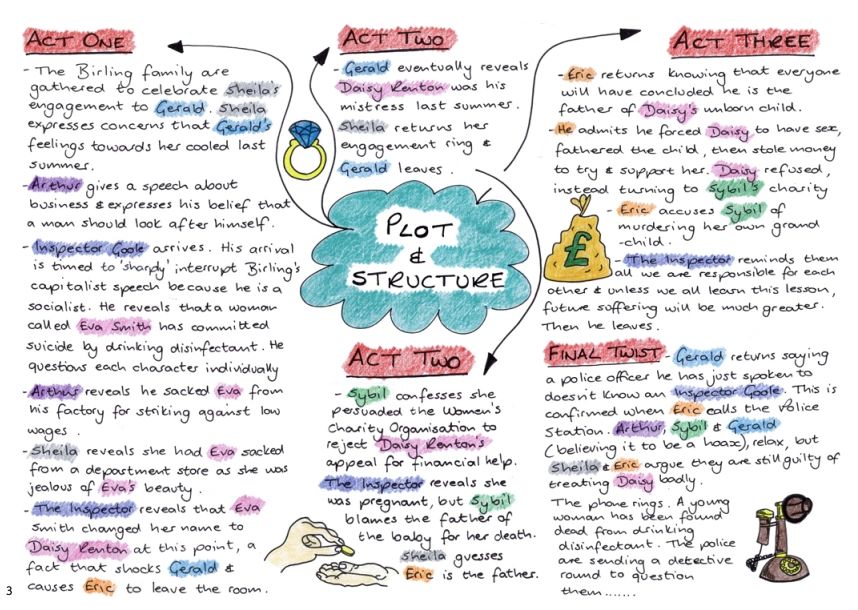 ACT ONE
- The Birling family are
gathered to celebrate Sheila's
engagement to Gerald. Sheila
expresses concerns that Gerald's
feelings towards her cooled last
summer.
- Arthur gives a speech about
business & expresses his belief that
a man should look after himself.
- Inspector Goole arrives. His arrival
is timed to 'sharply' interrupt Birling's
capitalist speech because he is a
socialist. He reveals that a woman
called Eva Smith has committed
suicide by drinking disinfectant. He
questions each character individually
- Arthur reveals he sacked Eva from
his factory for striking against low
wages.
- Sheila reveals she had Eva sacked
from a department store as she was
jealous of Eva's beauty.
- The Inspector reveals that Eva
Smith changed her name to
Daisy Renton at this point, a
fact that shocks Gerald &
causes Eric to leave the room.
3
ACT TWO
- Gerald eventually reveals
Daisy Renton was his
mistress last summer.
Sheila returns her
engagement ring &
Gerald leaves.
PLOT
&
STRUCTURE
ACT TWO
- Sybil confesses she
persuaded the Women's
Charity Organisation to
reject Daisy Renton's
appeal for financial help.
The Inspector reveals she
was pregnant, but Sybil
blames the father of
the baby for her death.
Sheila guesses
Eric is the father.
ACT THREE
- Eric returns knowing that everyone
will have concluded he is the
father of Daisy's unborn child.
- He admits he forced Daisy to have sex,
fathered the child, then stole money
to try & support her. Daisy refused,
instead turning to Sybil's charity
- Eric accuses Sybil of
murdering her own grand
-child.
£
- The Inspector reminds them
all we are responsible for each
other & unless we all learn this lesson,
future suffering will be much greater.
Then he leaves.
FINAL TWIST - Gerald returns saying
a police officer he has just spoken to
doesn't know an Inspector Goole. This is
confirmed when Eric calls the Police
Station. Arthur, Sybil & Gerald
(believing it to be a hoax), relax, but
Sheila & Eric argue they are still guilty of
treating Daisy badly.
The phone rings. A young
woman has been found
dead from drinking
disinfectant. The police
are sending a detective
round to question
them.......